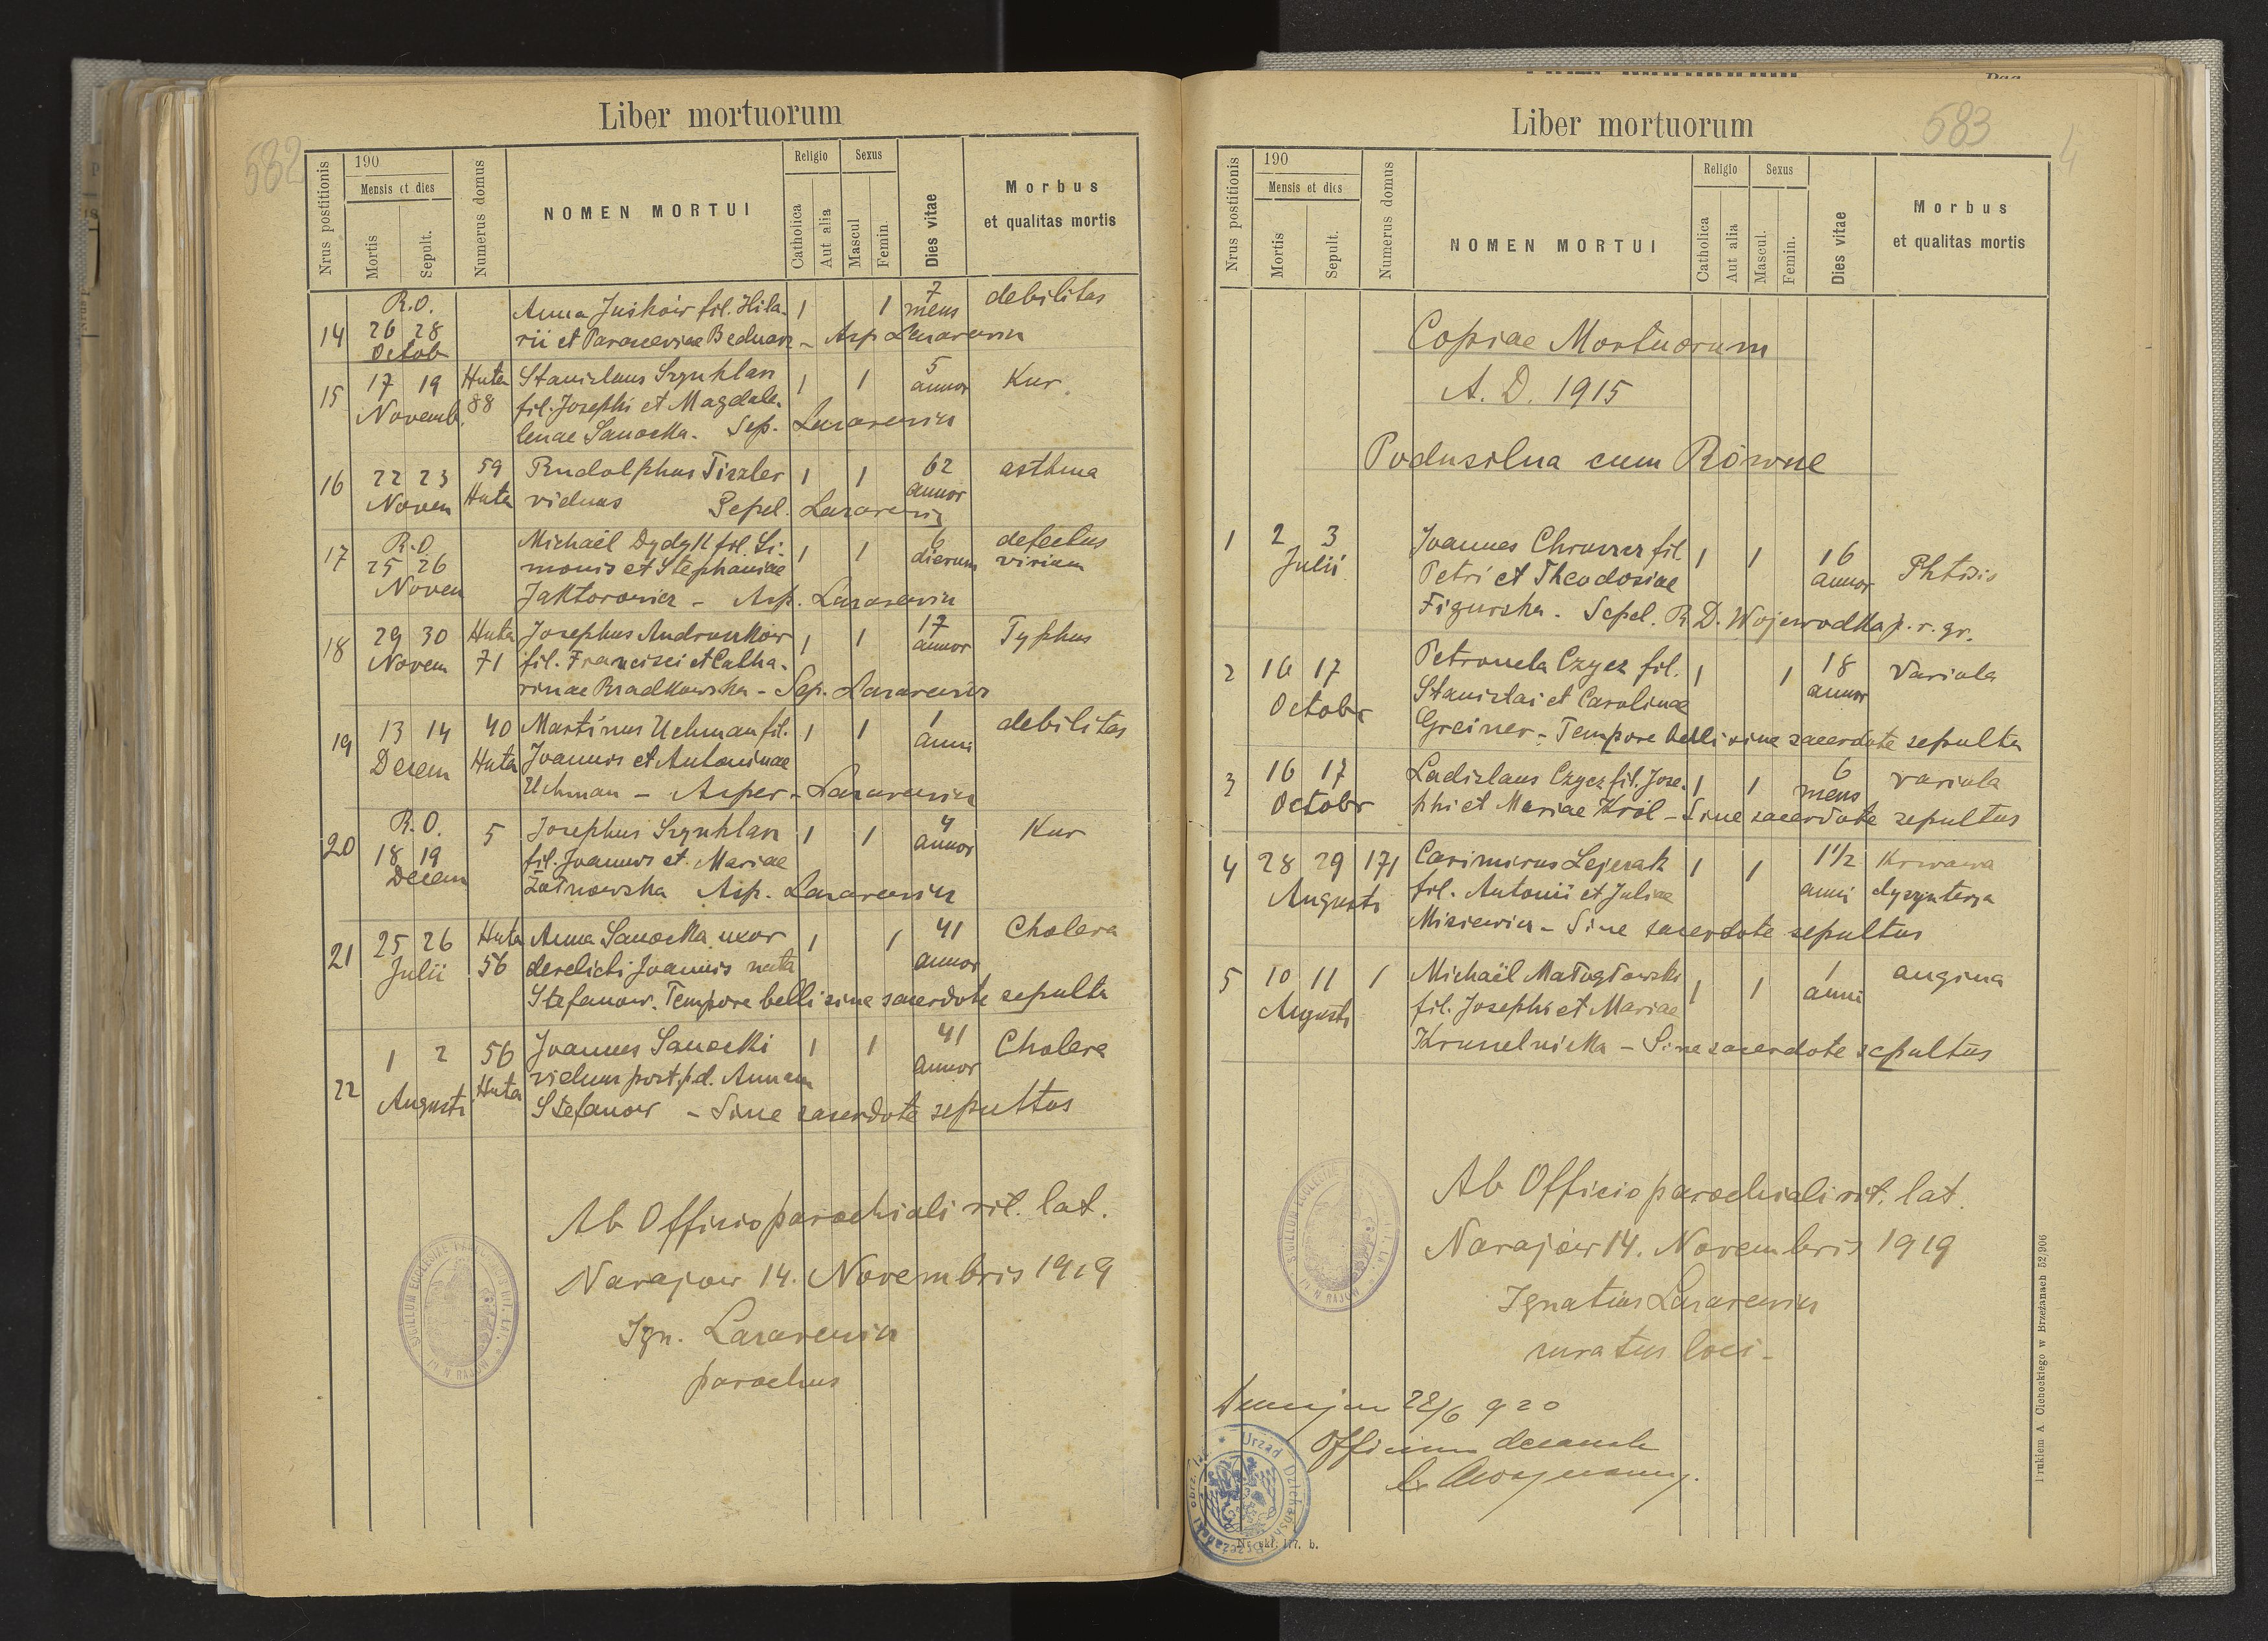 582
Liber mortuorum
Nrus postitionis
190
Mensis et dies
Mortis
Sepult.
Numerus domus
NOMEN MORTUI
Religio
Catholica
Aut alia
Sexus
Mascul
Femin.
Dies vitae
Morbus
et qualitas mortis
14 R.O. 26 28 Octob Anna Juśków fil. Hila- 1 1 7 mens debilitas
rii et Parasceviae Bednarz - Asp Lazarewicz
15 17 19 Novemb. Huta 88 Stanislaus Szynklarz 1 1 5 annor Kur
fil. Josephi et Magdale-
lenae Sanocka. Sep. Lazarewicz
16 22 23 Noven 59 Huta Rudolphus Tiszler 1 1 62 annor asthma
viduus Sepel. Lazarewicz
17 R.O. 25 26 Noven Michaël Dydyk fil. Si- 1 1 6 dierum defectus virium
monis et Stephaniae
Jaktorowicz - Asp. Lazarewicz
18 29 30 Novem Huta 71 Josephus Andruszków 1 1 17 annor Typhus
fil. Francisci et Catha-
rinae Rradkowska - Sep. Lazarewicz
19 13 14 Decem 40 Huta Martinus Uchman fil. 1 1 1 anni debilitas
Joannis et Antoninae
Uchman - Asper - Lazarewicz
20 R.O. 18 19 Decem 5 Josephus Szynklarz 1 1 4 annor Kur
fil. Joannis et Mariae
Żołnowska Asp. Lazarewicz
21 25 26 Julii Huta 56 Anna Sanocka uxor 1 1 41 annor Cholera
derelicti Joannis nata
Stefanow. Tempore belli sine sacerdote sepulta
22 1 2 Augusti 56 Huta Joannes Sanocki 1 1 41 annor Cholera
viduus post p.d. Annam
Stefanow - Sine sacerdote sepultus
Ab Officio parochiali rit. lat.
Narajow 14. Novembris 1919
Ign. Lazarewicz
parochus
583
4
Liber mortuorum
Nrus postitionis
190
Mensis et dies
Mortis
Sepult.
Numerus domus
NOMEN MORTUI
Religio
Catholica
Aut alia
Sexus
Mascul.
Femin.
Dies vitae
Morbus
et qualitas mortis
Copiae Mortuorum
A. D. 1915
Podusilna cum Równe
1 2 3 Julii Joannes fil. 1 1 16 annor Phtisis
Petri et Theodosiae
Figurska. Sepel. R.D. Wojewodka p. r. gr.
2 16 17 Octobr Petronela Czyez fil. 1 1 18 annor Variola
Stanislai et Carolinae
Greiner - Tempore belli sine sacerdote sepulta
3 16 17 Octobr Ladislaus Czyez fil. Jose- 1 1 6 mens variola
phi et Mariae Król - Sine sacerdote sepultus
4 28 29 Augusti 171 Casimirus Lejczak 1 1 1 1/2 anni Krwawa dyzynterya
fil. Antonii et Juliae
Misiewicz - Sine sacerdote sepultus
5 10 11 Augusti 1 Michaël Małogłowski 1 1 1 anni angina
fil. Josephi et Mariae
Krumelnicka - Sine sacerdote sepultus
Ab Officio parochiali rit. lat.
Narajów 14. Novembris 1919
Ignatius Lazarewicz
curatus loci -
28/6 920
Officium decanale
Drukiem A Cichockiego w Brzeżanach 52,906
Nr. skł. 177. b.